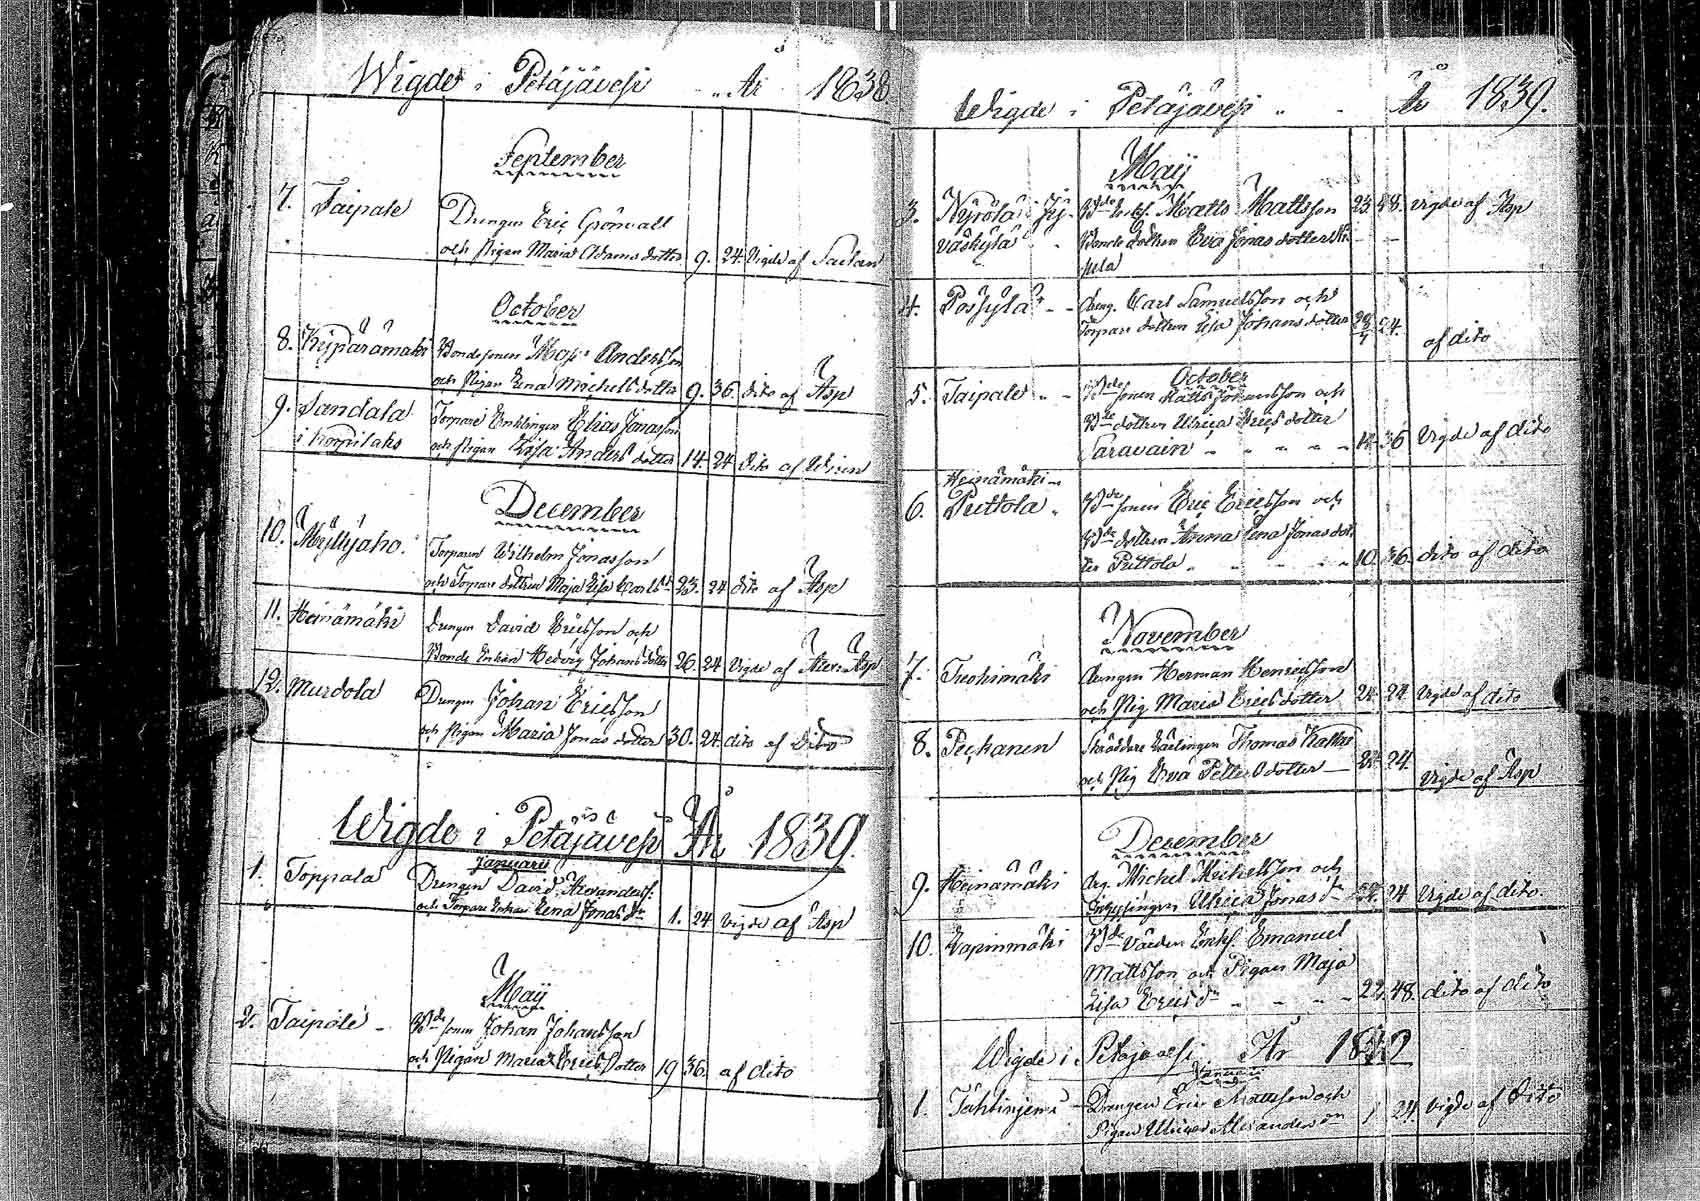 Wigde i Petäjävesi .. År 1838
September
7. Taipale Drengen Eric Grönvall
och Pigan Maria Adams dotter 9. 24. Vigde af
October
8. Kijpärämäki Bondesonen Andersson
och Pigan Lena Michels dotter 9. 36. dito af Asp
9. Sandala Torpare Enklingen Elias Jonasson
i och Pigan Lisa Anders dotter 14. 24 dito af
December
10. Myllyaho. Torparen Wilhelm Jonasson
och Torpare dottren Maja Lisa Carls dr 23. 24 dito af Asp
11. Heinämäki Drengen David Ericsson och
Bonde Enkan Hedvig Johans dotter 26. 24 Vigde af Asp
12. Murdola Drengen Johan Ericsson
och Pigan Maria Jonas dotter 30. 24. dito af Dito
Wigde i Petäjävesi År 1839
Januarii
1. Toppala Drengen David Alexanders.
och Torpare Enkan Lena Jonas dr 1. 24 Vigde af Asp
Maij
2. Taipale - Bde sonen Johan Johansson
och Pigan Maria Erics Dotter 19 36. af dito
Wigde i Petäjävesi .. - År 1839.
Maij
3. Nyrölä i Jy- Bde Enkl. Matts Mattsson 23. 48. Vigde af Asp
väskylä - - Bonde dottren Eva Jonas dotter
4. - - dreng. Carl Samuelsson och
Torpare dottren Lisa Johans dotter 24. af dito
October
5. Taipale - - Bde sonen Matts Johansson och
Bde dottren Ulrica Erics dotter
Saravain - - - - - 36 Vigde af dito
Heinämäki -
6. Puttola - Bde sonen Eric Ericsson och
Bde dottren Anna Lena Jonas dot-
ter Puttola - - - - 10. 36. dito af dito
November
7. Tuohimäki drengen Herman Henricsson
och Pig Maria Erics dotter 24. 24 Vigde af dito
8. Pechanen Skräddare Thomas
och Pig Eva Petters dotter — 24. Vigde af Asp
December
9. Heinämäki drg. Michel Michelsson och
Ulrica Jonas dr 24 Vigde af dito.
10. Lapinmäki Bde Enkl. Emanuel
Mattsson och Pigan Maja
Lisa Erics dr - - - - 22. 48. dito af dito
Wigde i Petäjävesi År
Januari
1. Drengen Eric Mattsson och
Pigan Ulrica Alexanders dr 1 24 Vigde af Dito